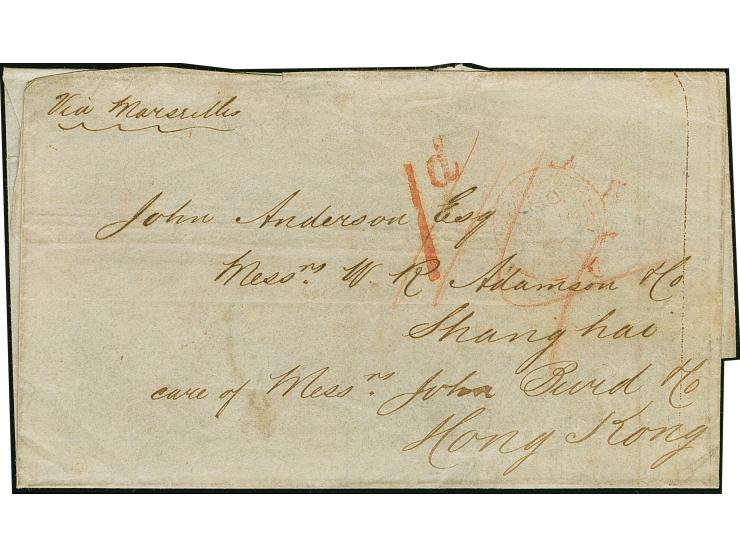 Via Marseilles
1d
John Anderson Esq
Messrs. W. R. Adamson & Co
Shanghai
care of Messrs. John Burd & Co
Hong Kong